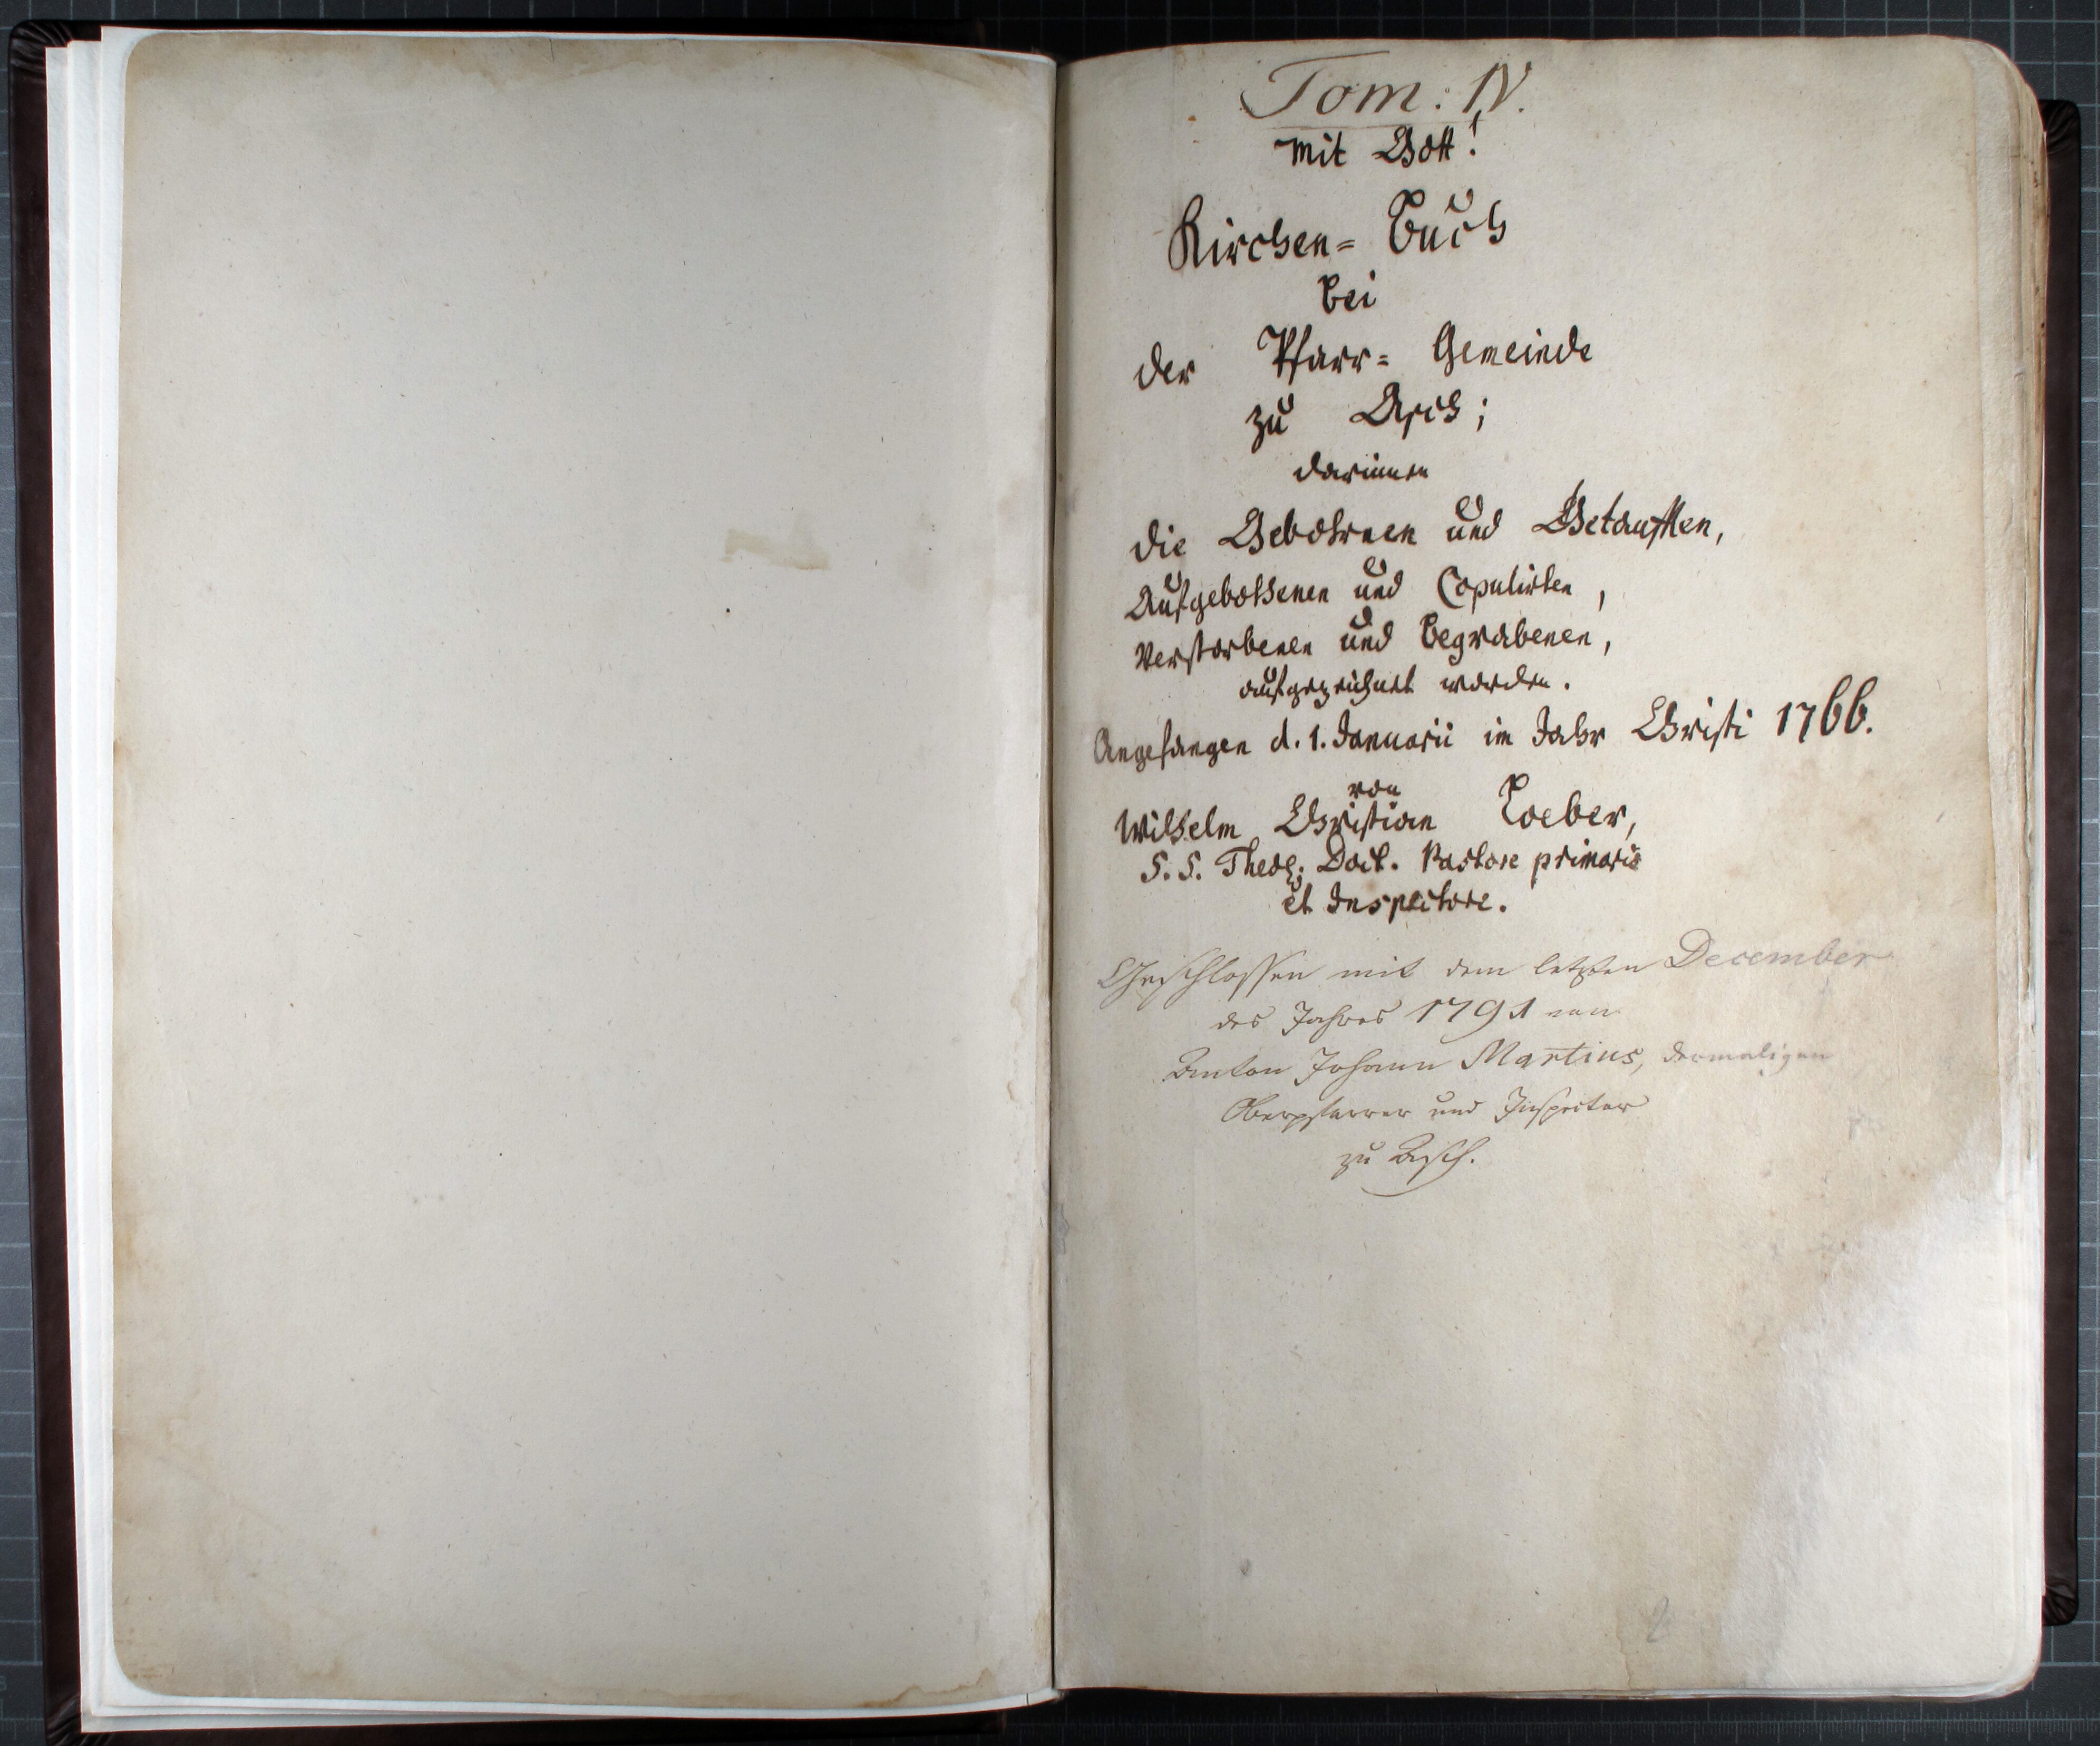 Tom: IV.
Mit Gott!
Kirchen= Buch
bei
der Pfarr= Gemeinde
zu Asch;
darinnen
die Gebohrnen und Getaufften,
Aufgebothenen und Copulirten,
Verstorbenen und Begrabenen,
aufgezeichnet worden.
Angefangen d. 1. Januarii im Jahr Christi 1766.
von
Wilhelm Christian Loeber,
S. S. Theol. Doct. Pastore primario
et Inspectore.
Geschlossen mit dem letzten December
des Jahres 1791 von
Anton Johann Martius, dermaligen
Oberpfarrer und Inspector
zu Asch.
2